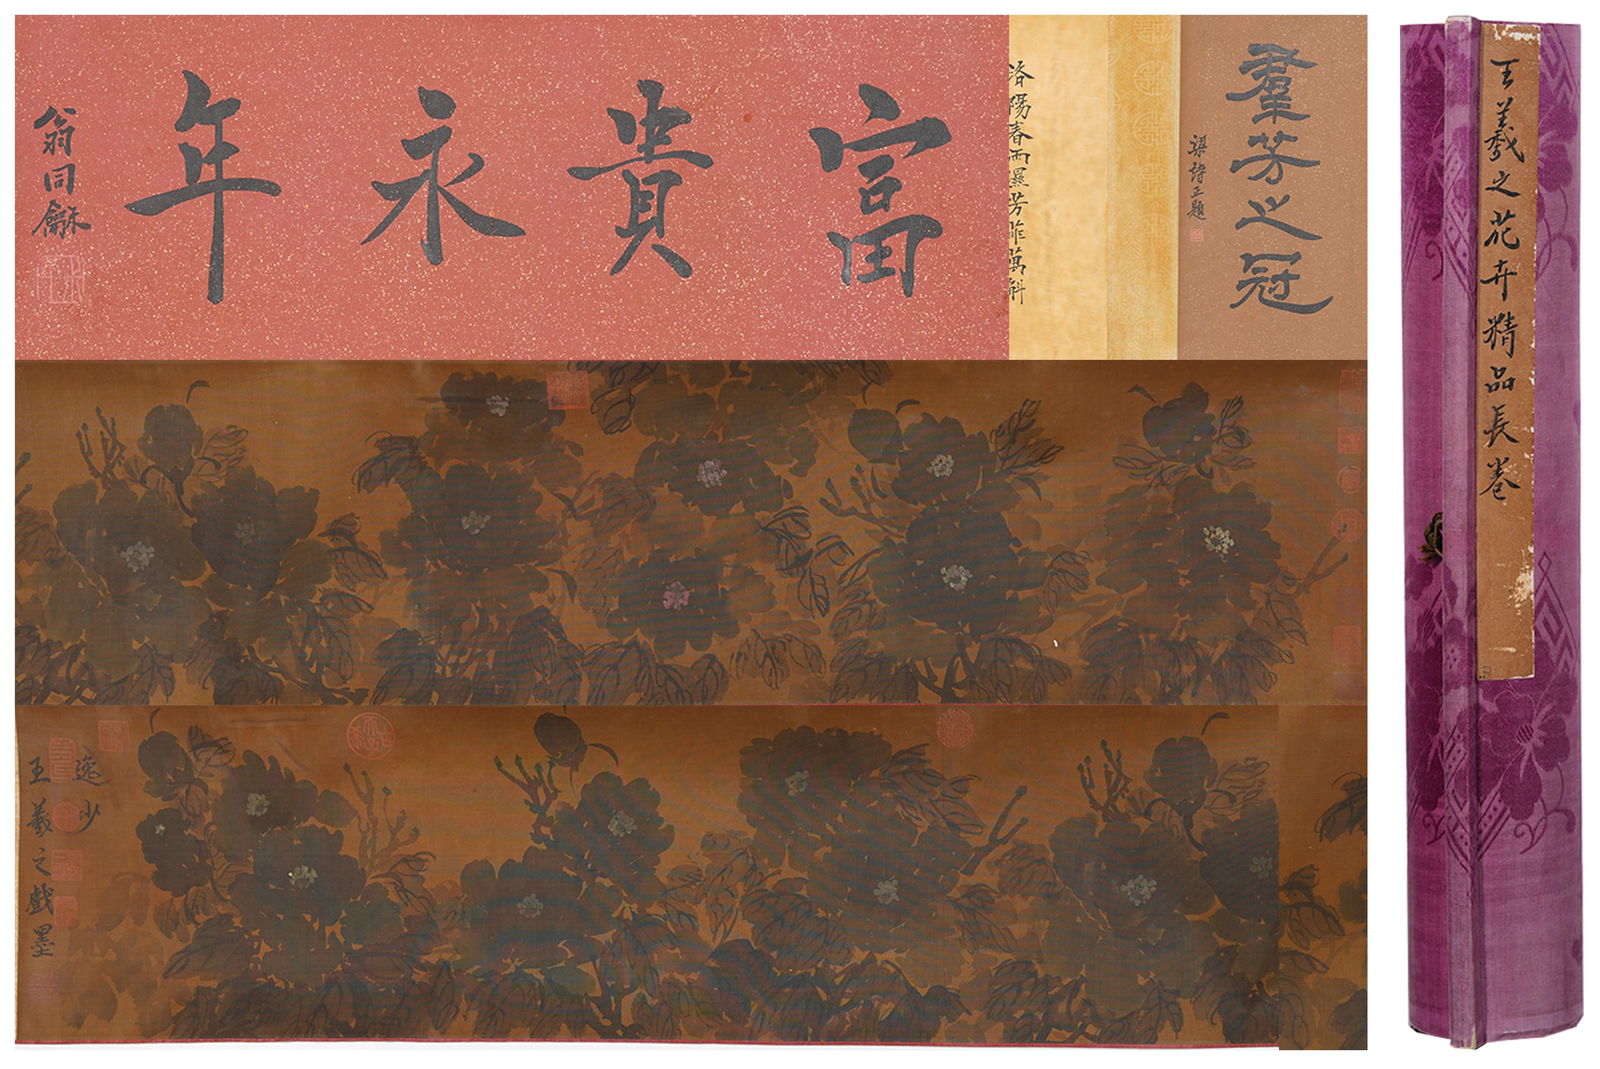 羣芳之冠
梁詩正題
洛陽春雨濕芳菲萬斛
富貴永年
翁同龢
逸少
王羲之戲墨
王羲之花卉精品長卷